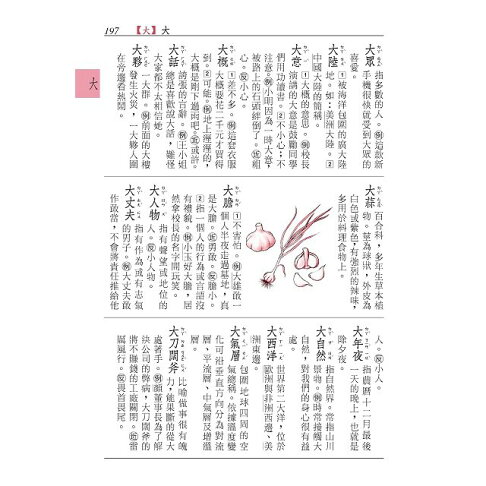 197 【大】大
大
大眾 指多數的人。例這款新
手機很快就受到大眾的
喜愛。
大陸 1被海洋包圍的廣大陸
地。如:美洲大陸。2
中國大陸的簡稱。
大意 1大概的意思。例校長
演講的大意是鼓勵同學
們用功讀書。2不小心;不
注意。例小明因為一時大意,
被路上的石頭絆倒了。近粗
心。反小心。
大概 1差不多。例這套衣服
大概要花二千元才買得
到。2可能。例地上濕濕的,
大概是剛下過雨吧?近或許。
大話 誇張的言辭。例王小姐
總是喜歡說大話,難怪
大家都不太相信她。
大夥 一大群。例前面的大樓
發生火災,一大夥人圍
在旁邊看熱鬧。
大蒜 百合科,多年生草本植
物。莖為球狀,外皮為
白色或紫色,有強烈的辣味,
多用於料理食物上。
大膽 1不害怕。例大雄敢一
個人半夜走過墓地,真
是大膽。近勇敢。反膽小。
2指一個人的行為或言語沒
有禮貌。例小玉好大膽,居
然拿校長的名字開玩笑。
大人物 指有聲望或地位的
人。反小人物。
大丈夫 指有作為或有志氣
的男子。例大丈夫敢
作敢當,不會將責任推給他
人。反小人。
大年夜 指農曆十二月最後
一天的晚上,也就是
除夕夜。
大自然 指自然界。常指山川
景物。例時常接觸大
自然,對我們的身心很有益。
大西洋 世界第二大洋,位於
歐洲與非洲西邊、美
洲東邊。
大氣層 包圍地球四周的空
氣總稱。依據溫度變
化可沿垂直方向分為對流
層、平流層、中氣層及增溫
層。
大刀闊斧 比喻做事很有魄
力,能果斷的從大
處著手。例顏董事長為了解
決公司的弊病,大刀闊斧的
將不賺錢的工廠關閉。近雷
厲風行。反畏首畏尾。